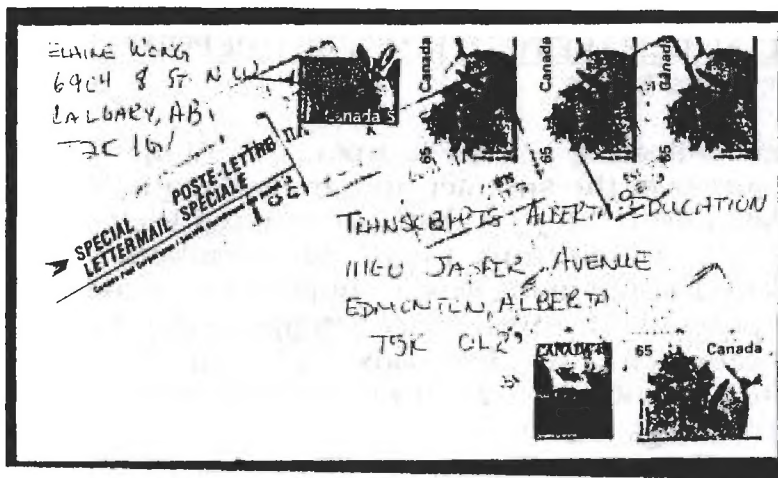 ELAINE WONG
6904 8 ST. N.W
CALGARY, AB
Canada 5
Canada
65
Canada
65
Canada
65
POSTE-LETTRE
SPECIAL SPÉCIALE
LETTERMAIL
TRANSCRIPTS ALBERTA EDUCATION
11160 JASPER AVENUE
EDMONTON, ALBERTA
T5K 0L2
CANADA
65 Canada